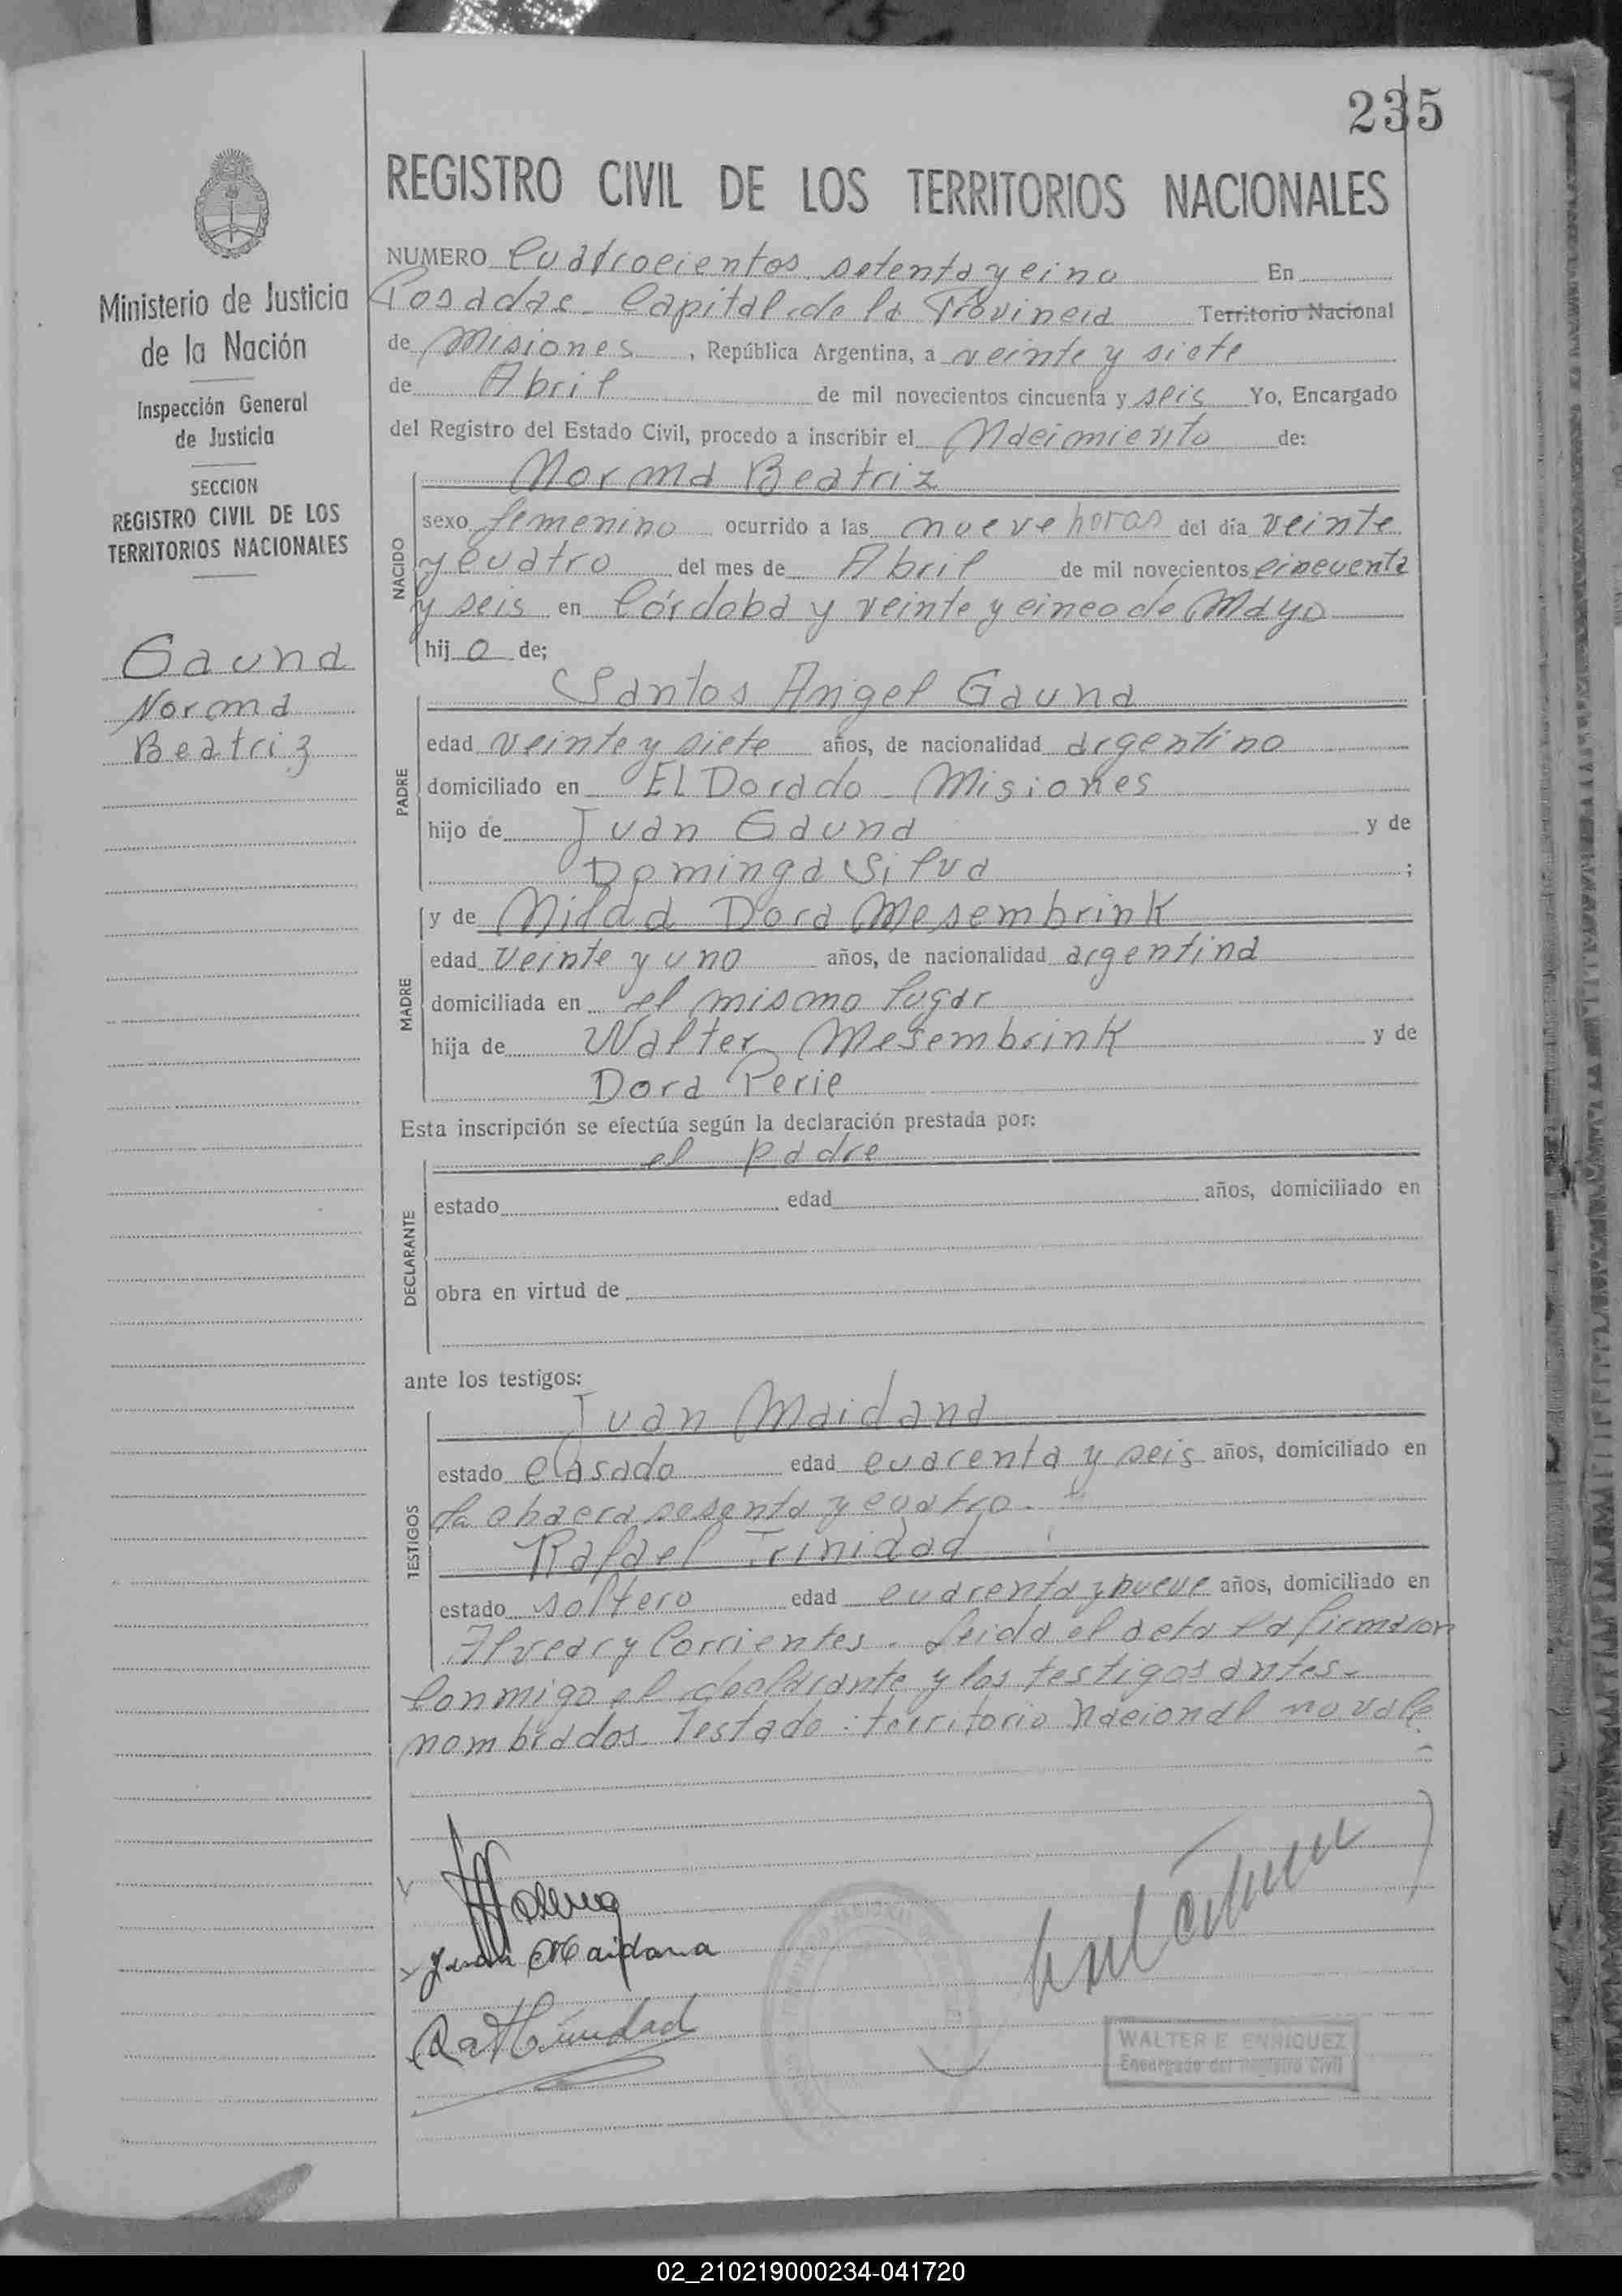 235
REGISTRO CIVIL DE LOS TERRITORIOS NACIONALES
Ministerio de Justicia
de la Nación
Inspección General
de Justicia
SECCION
REGISTRO CIVIL DE LOS
TERRITORIOS NACIONALES
Gauna
Norma
Beatriz
NUMERO Cuatrocientos setenta y cinco En
Posadas - Capital de la Provincia Territorio Nacional
de Misiones, República Argentina, a veinte y siete
de Abril de mil novecientos cincuenta y seis Yo, Encargado
del Registro del Estado Civil, procedo a inscribir el Nacimiento de:
NACIDO
Norma Beatriz
sexo femenino ocurrido a las nueve horas del día veinte
y cuatro del mes de Abril de mil novecientos cincuenta
y seis en Córdoba y veinte y cinco de Mayo
hij a de;
PADRE
Santos Angel Gauna
edad veinte y siete años, de nacionalidad argentino
domiciliado en El Dorado - Misiones
hijo de Juan Gauna y de
Dominga Silva ;
MADRE
y de Dora Mesembrink
edad veinte y uno años, de nacionalidad argentina
domiciliada en el mismo lugar
hija de Walter Mesembrink y de
Dora Perie
Esta inscripción se efectúa según la declaración prestada por:
DECLARANTE
el padre
estado edad años, domiciliado en
obra en virtud de
ante los testigos:
TESTIGOS
Juan Maidana
estado casado edad cuarenta y seis años, domiciliado en
la chacra sesenta y cuatro.
Rafael Trinidad
estado soltero edad cuarenta y nueve años, domiciliado en
Alvear y Corrientes. Leida el acta la firmaron
Conmigo el declarante y los testigos antes
nombrados. Testado: territorio nacional no vale
Juan Maidana
WALTER E. ENRIQUEZ
Encargado del Registro Civil
02_210219000234-041720